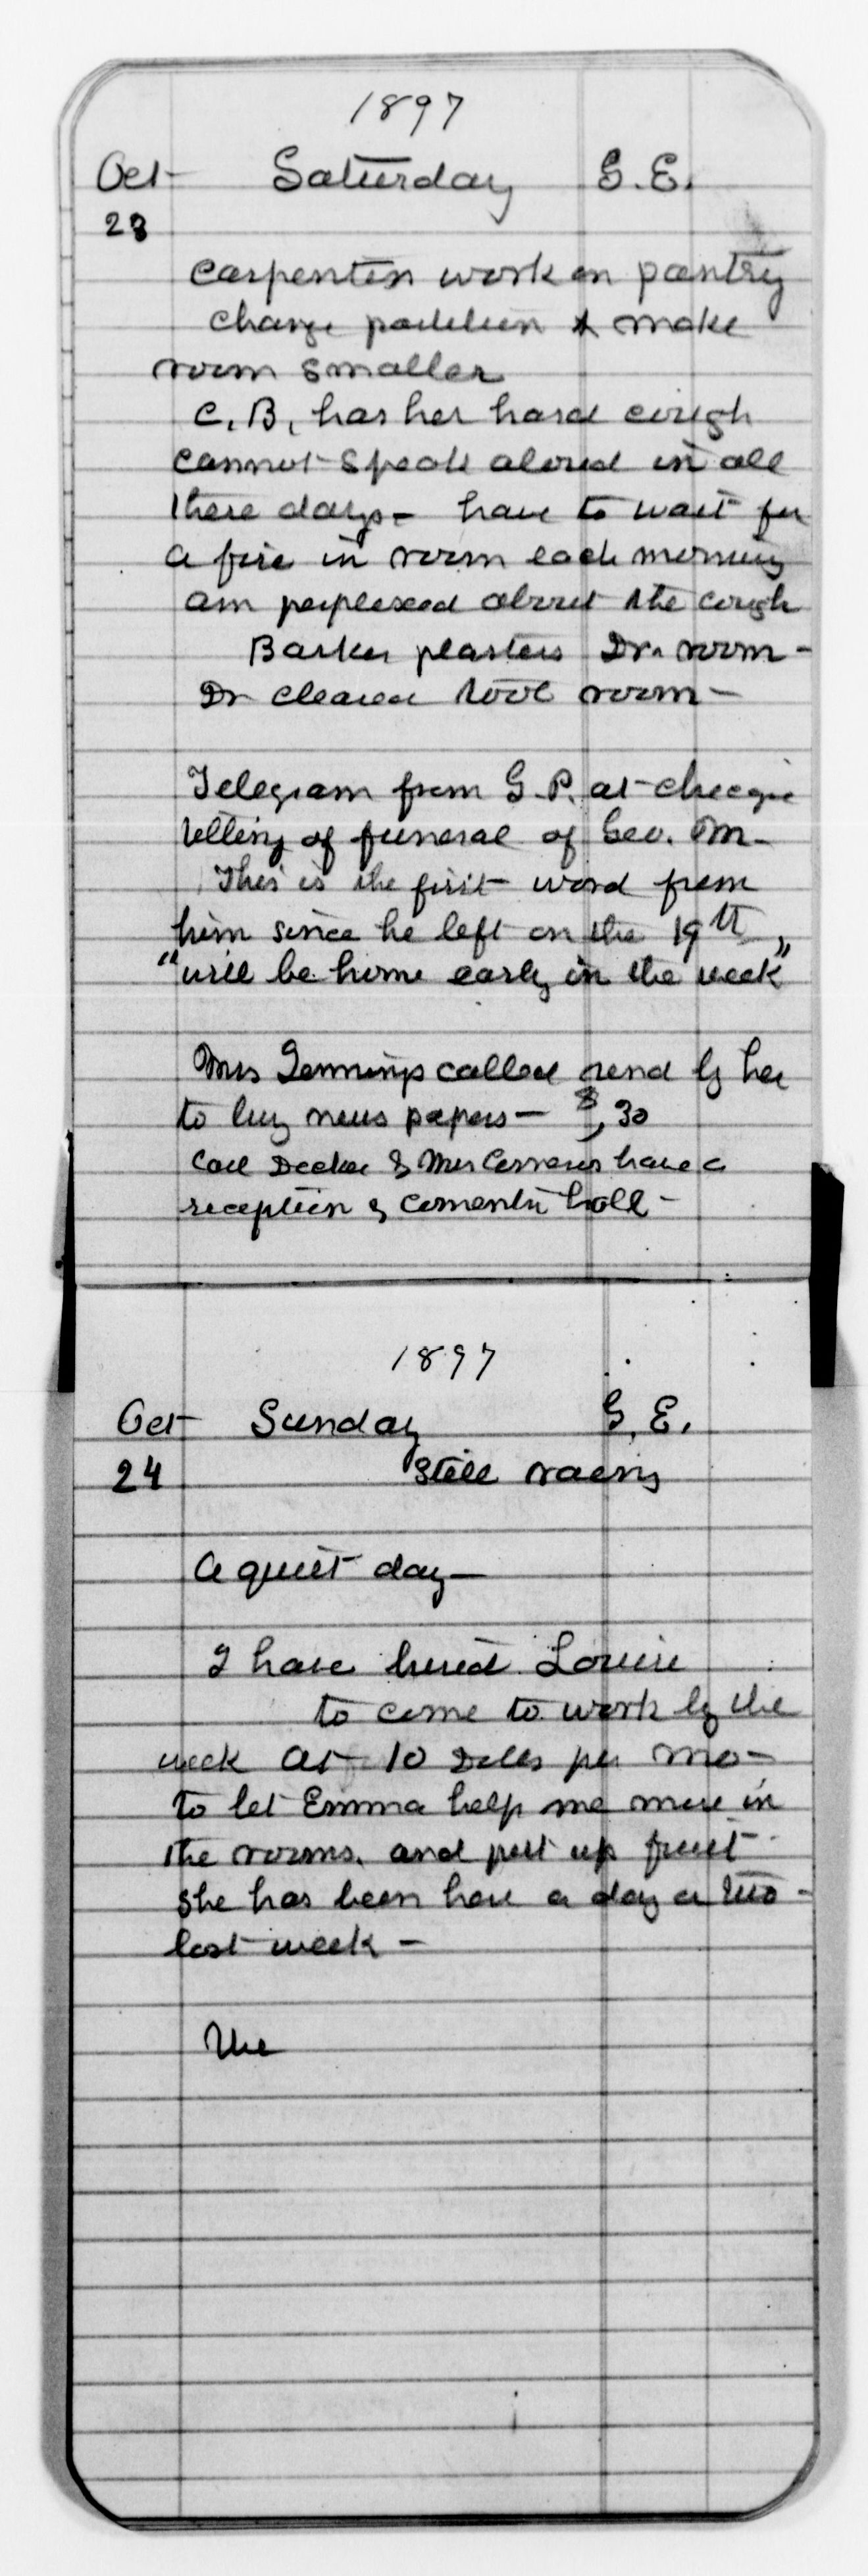 1897
Oct Saturday G.E.
23
Carpenters work on pantry
change partition & make
room smaller
C.B, has her hard cough
cannot speak aloud in all
these days - have to wait for
a fire in room each morning
am perplexed about the cough
Barker plasters Dr. room -
Dr cleared tool room -
Telegram from G.P. at Chicago
telling of funeral of Geo. M -
This is the first word from
him since he left on the 19th
"will be home early in the week"
Mrs Jennings called send by her
to buy news papers - $,30
Decker & Mrs have a
reception & hall -
1897
Oct Sunday G.E.
24 Still rainy
A quiet day -
I have hired Louise
to come to work by the
week at 10 Dolls per mo -
to let Emma help me more in
the rooms. and put up fruit
She has been here a day or two -
last week -
The